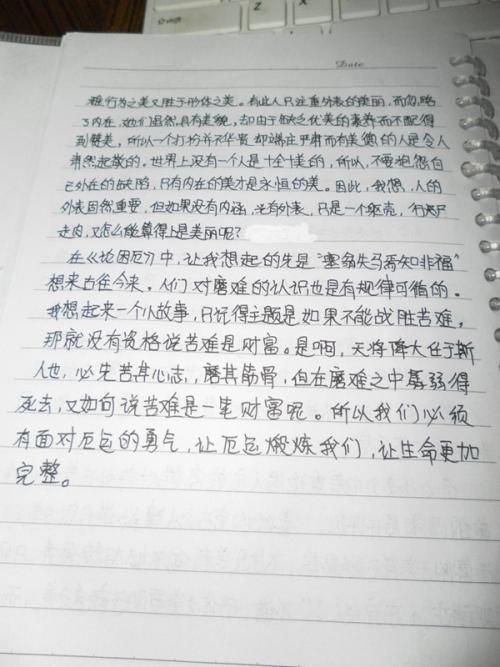 Date
雅行为之美又胜于形体之美。有些人只注重外表的美丽,而忽略
了内在,她们虽然具有美貌,却由于缺乏优美的素养而不配得
到赞美,所以一个打扮并不华贵却端庄严肃而有美德的人是令人
肃然起敬的。世界上没有一个人是十全十美的,所以,不要抱怨自
己外在的缺陷,只有内在的美才是永恒的美。因此,我想,人的
外表固然重要,但如果没有内涵,光有外表,只是一个躯壳,行尸
走肉,又怎么能算得上是美丽呢?
在《论困厄》中,让我想起的先是“塞翁失马焉知非福”
想来古往今来。人们对磨难的认识也是有规律可循的。
我想起来一个小故事,只记得主题是如果不能战胜苦难,
那就没有资格说苦难是财富。是啊,天将降大任于斯
人也,必先苦其心志,磨其筋骨,但在磨难之中孱弱得
死去,又如何说苦难是一笔财富呢。所以我们必须
有面对厄运的勇气,让厄运煅炼我们,让生命更加
完整。